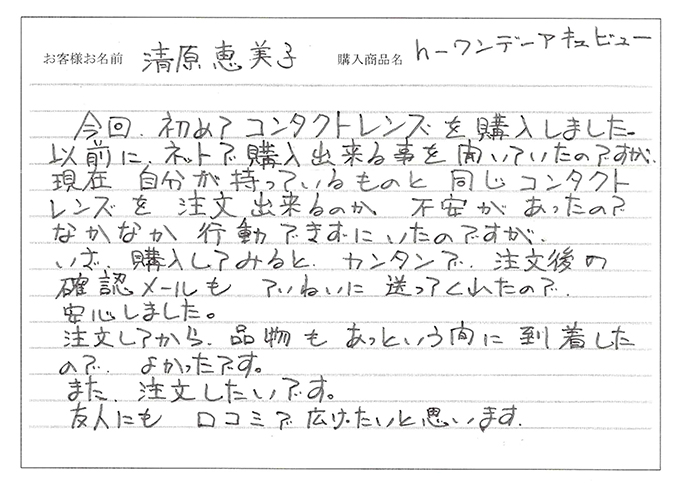 お客様お名前 清原恵美子 購入商品名 h-ワンデーアキュビュー
今回、初めてコンタクトレンズを購入しました。
以前に、ネットで購入出来る事を聞いていたのですが、
現在 自分が持っているものと 同じコンタクト
レンズを 注文出来るのか、不安があったので
なかなか 行動できずにいたのですが、
いざ、購入してみると、カンタンで、注文後の
確認メールも ていねいに 送ってくれたので、
安心しました。
注文してから、品物も あっという間に 到着した
ので、よかったです。
また、注文したいです。
友人にも 口コミで 広げたいと思います。